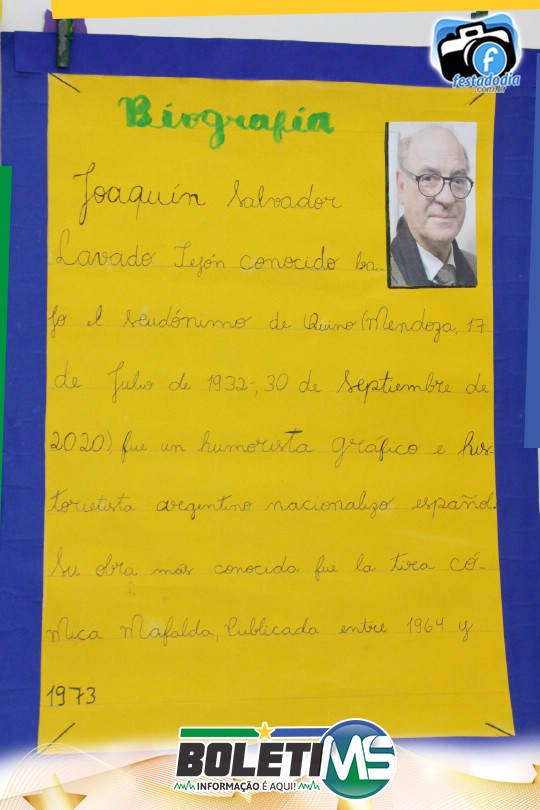 festadodia
.com.br
Biografia
Joaquín Salvador
Lavado Tejón conocido ba-
jo el seudónimo de Quino (Mendoza, 17
de Julio de 1932-, 30 de Septiembre de
2020) fue un humorista gráfico e his-
torietista argentino nacionalizo español.
Su obra más conocida fue la tira có-
mica Mafalda, Publicada entre 1964 y
1973
BOLETIMS
INFORMAÇÃO É AQUI!